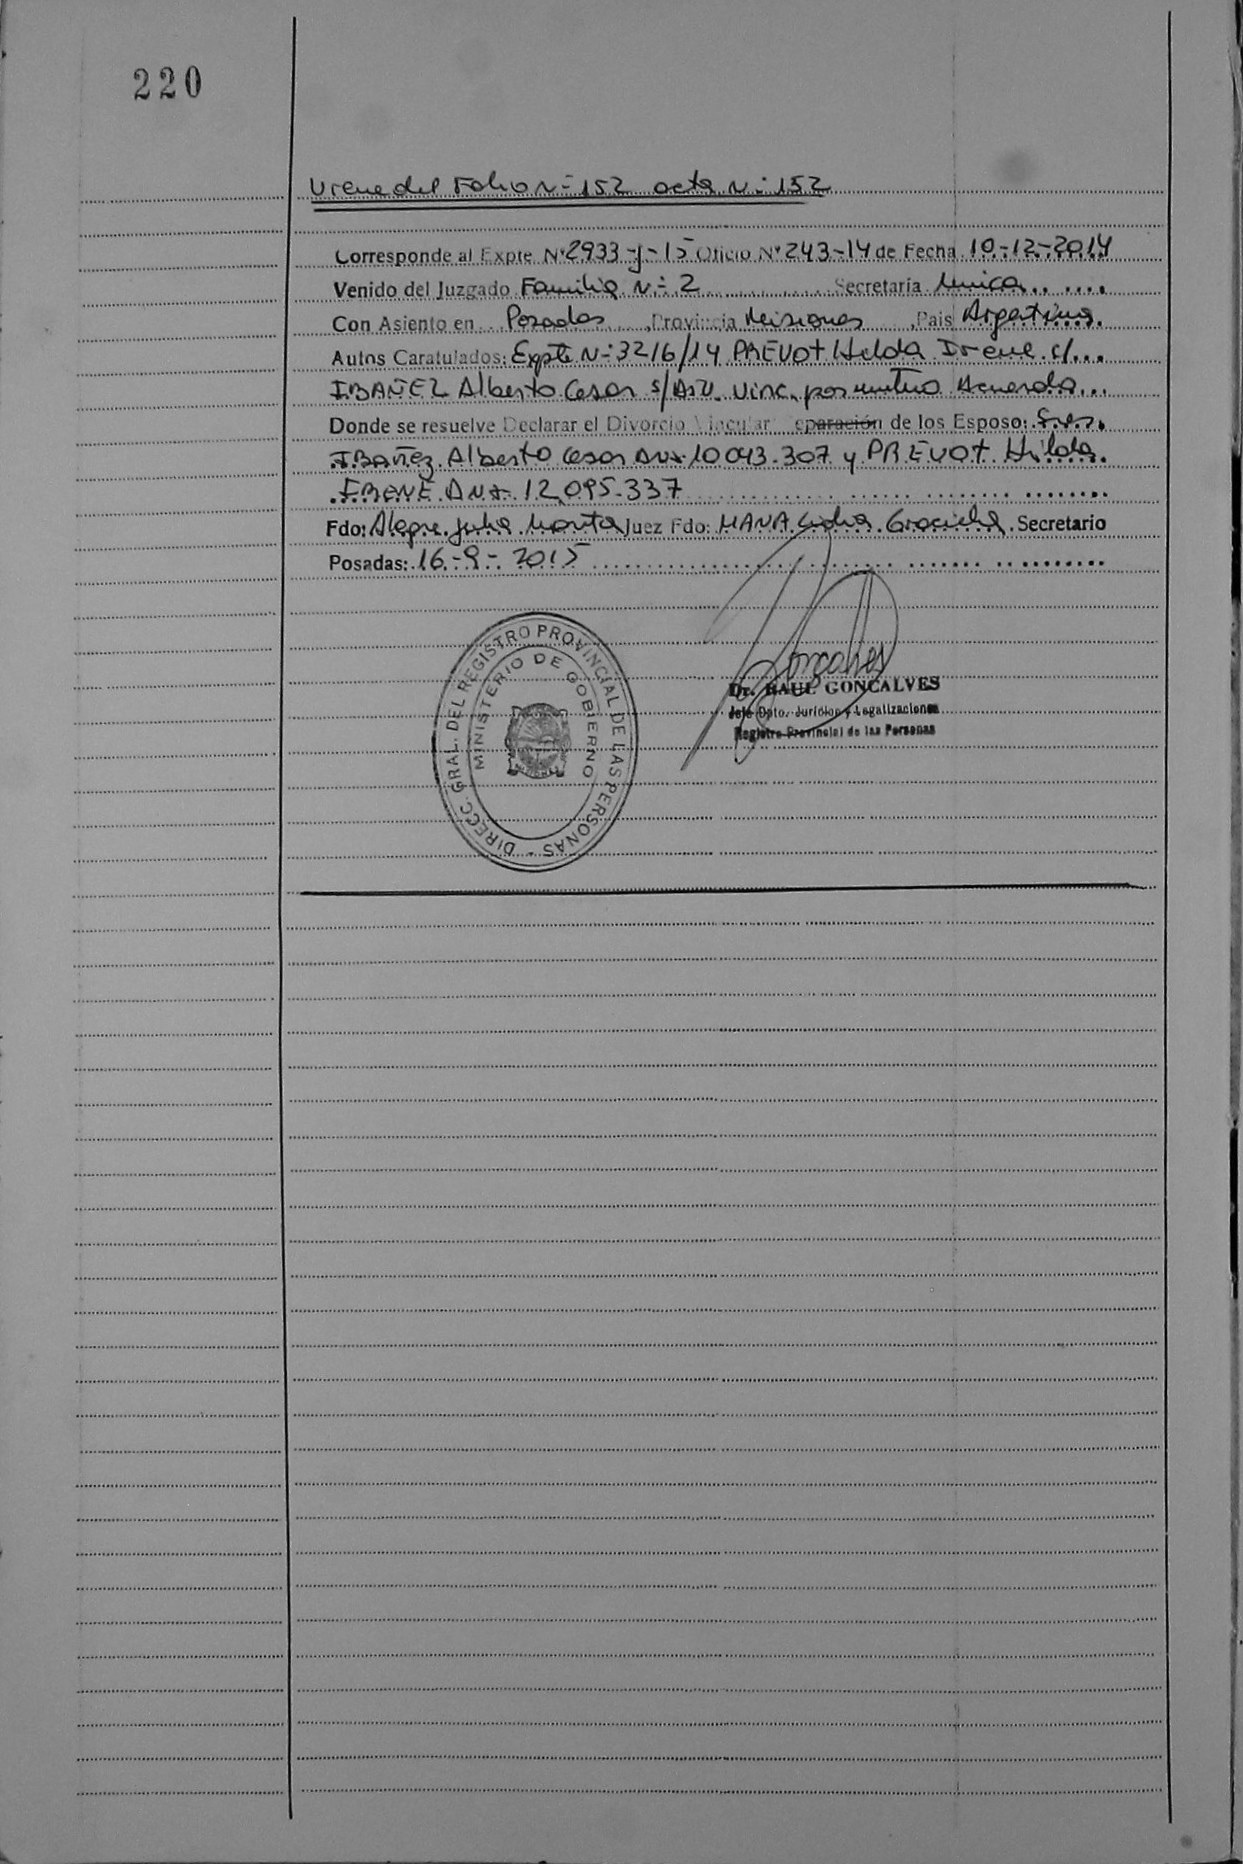 220
Viene del Folio N- 152 acta N- 152
Corresponde al Expte N° 2933-y-15 Oficio N° 243-14 de Fecha 10-12-2014
Venido del Juzgado Familia N- 2 Secretaria Unica
Con Asiento en Posadas, Provincia Misiones, Pais Argentina.
Autos Caratulados: Expte N- 3216/14 PREVOT Hilda Irene c/
IBAÑEZ Alberto Cesar s/ Div. Vinc. por mutuo Acuerdo
Donde se resuelve Declarar el Divorcio Vincular Separación de los Esposo: Sres.
Ibañez Alberto Cesar DNI 10 043.307 y PREVOT Hilda
IRENE DNI. 12.095.337
Fdo: Alegre Julia Marta Juez Fdo: MANA Lidia Graciela. Secretario
Posadas: 16-9-2015
DIRECC. GRAL. DEL REGISTRO PROVINCIAL DE LAS PERSONAS -
MINISTERIO DE GOBIERNO
Goncalves
Dr. RAUL GONCALVES
Jefe Dpto. Jurídico y Legalizaciones
Registro Provincial de las Personas